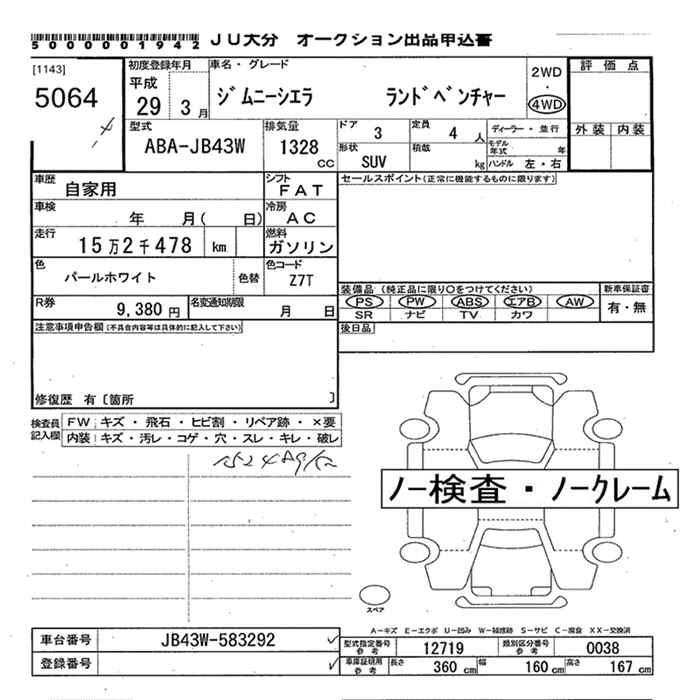 5000001942 JU大分 オークション出品申込書
[1143]
5064
初度登録年月
平成
29 3月
車名・グレード
ジムニーシエラ ランドベンチャー
2WD
・
4WD
評価点
外装 内装
型式
ABA-JB43W
排気量
1328
cc
ドア 3
定員 4 人
ディーラー・並行
モデル年式 年
形状
SUV
積載
kg
ハンドル 左・右
車歴 自家用
シフト
FAT
セールスポイント(正常に機能するものに限ります)
車検 年 月( 日)
冷房
AC
走行 15万2千478 km
燃料
ガソリン
色
パールホワイト
色替
色コード
Z7T
装備品 (純正品に限り○をつけてください)
新車保証書
PS PW ABS エアB AW
有・無
SR ナビ TV カワ
R券 9,380円
名変通知期限
月 日
後日品
注意事項申告欄(不具合内容等は具体的に記入して下さい)
修復歴 有〔箇所 〕
検査員
記入欄
FW:キズ・飛石・ヒビ割・リペア跡・×要
内装:キズ・汚レ・コゲ・穴・スレ・キレ・破レ
ノー検査・ノークレーム
スペア
A-キズ E-エクボ U-凹み W-補修跡 S-サビ C-腐食 XX-交換済
車台番号 JB43W-583292
型式指定番号
参考
12719
類別区分番号
参考
0038
登録番号
車庫証明用
参考
長さ 360 cm 幅 160 cm 高さ 167 cm